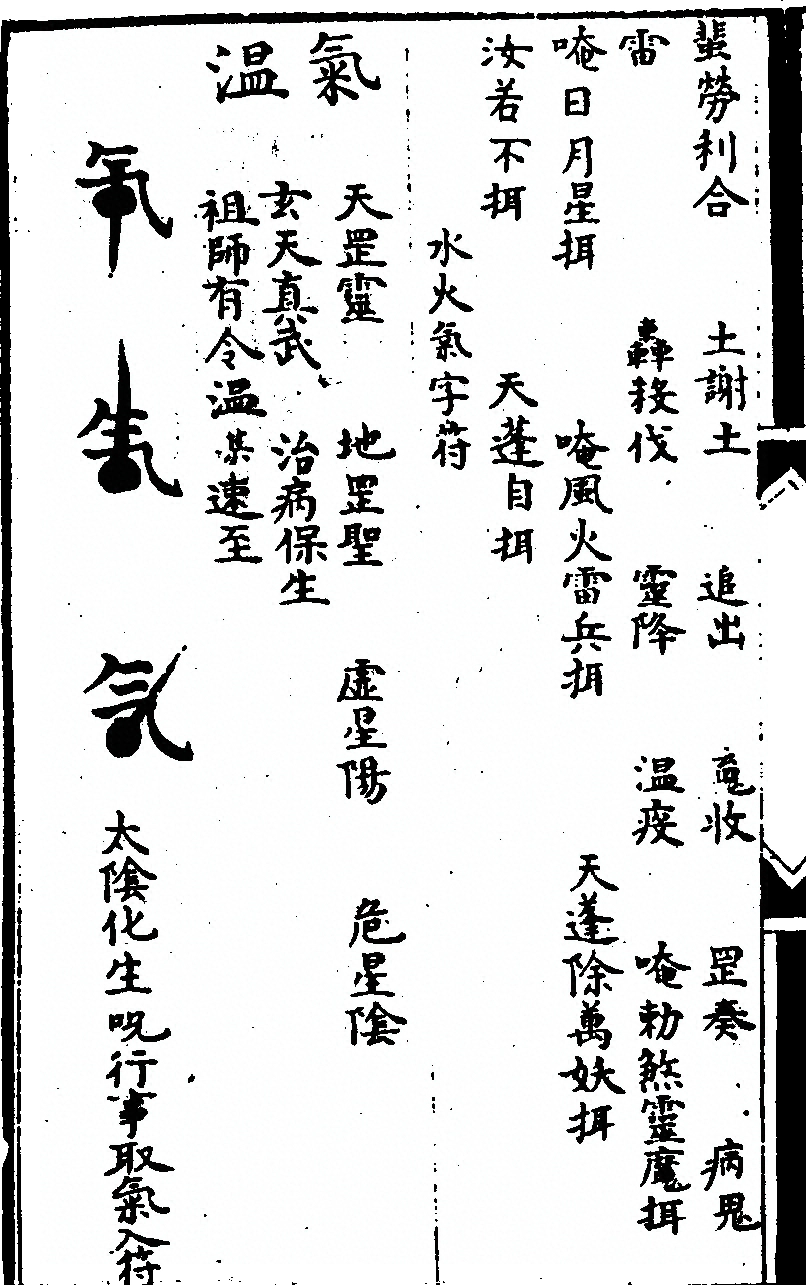 蜚勞利合 土謝土 追出 竈收 罡奏 病鬼
雷 轟殺伐 靈降 温疫 唵勅煞靈魔挕
唵日月星挕 唵風火雷兵挕 天蓬除萬妖挕
汝若不挕 天蓬自挕
水火氣字符
氣 天罡靈 地罡聖 虚星陽 危星陰
玄天真武 治病保生
温 祖師有令温某速至
太陰化生呪行事取氣入符